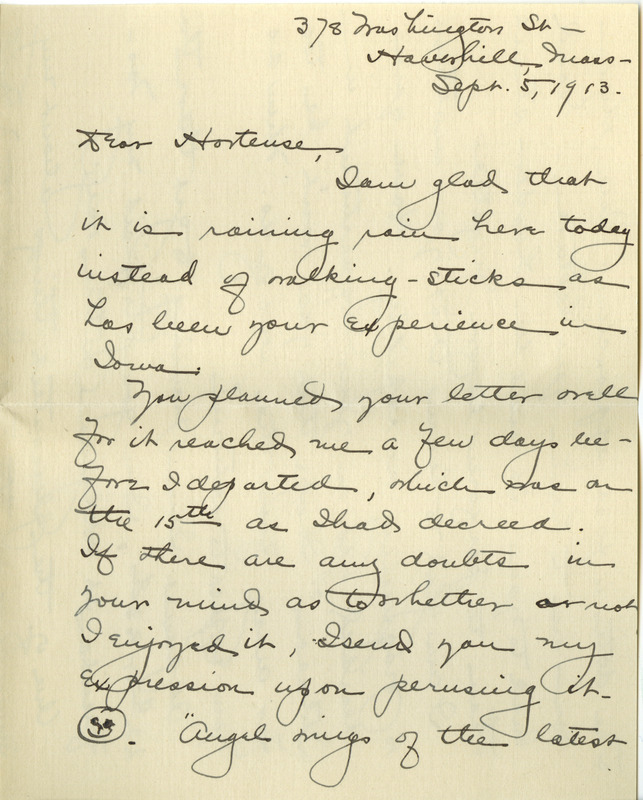 378 Washington St -
Haverhill, Mass -
Sept. 5, 1913.
Dear Hortense,
I am glad that
it is raining rain here today
instead of walking-sticks as
has been your experience in
Iowa.
You planned your letter well
for it reached me a few days be-
fore I departed, which was on
the 15th as I had decreed.
If there are any doubts in
your mind as to whether or not
I enjoyed it, I send you my
expression upon perusing it -
. "Angel wings of the latest